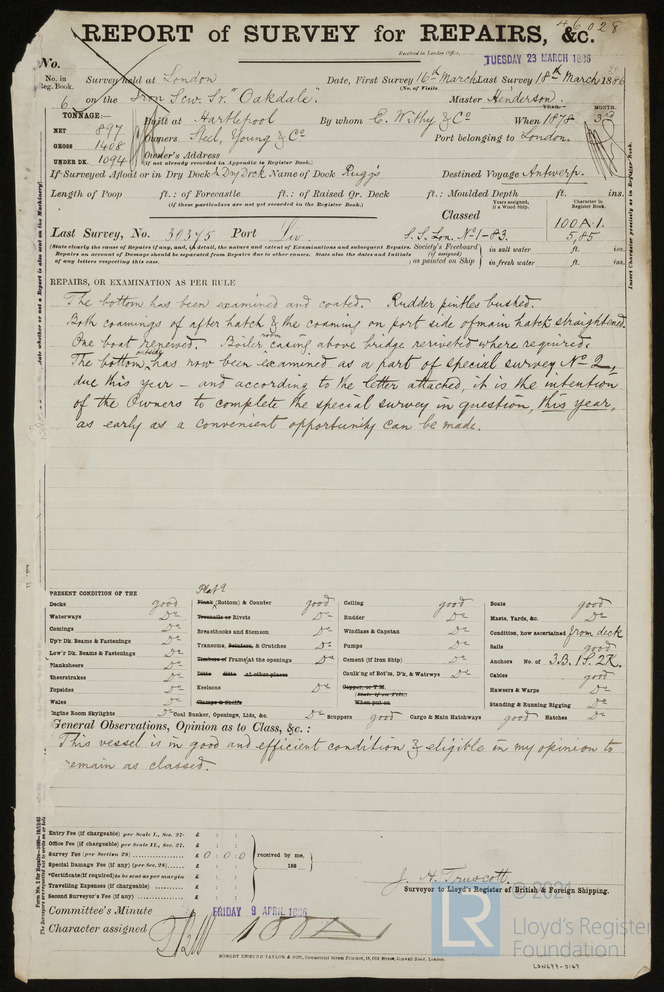 46028
REPORT of SURVEY for REPAIRS, &c.
Received in London Office,
TUESDAY 23 MARCH 1886
No.
No. in Reg. Book. Survey held at London Date, First Survey 16th March Last Survey 18th March 1886
(No. of Visits
6 on the Iron Scw. Sr. "Oakdale". Master Henderson.
TONNAGE:— YEAR. MONTH.
NET 897 Built at Hartlepool By whom E. Withy & Co When 1878 3rd
GROSS 1408 Owners Steel, Young & Co Port belonging to London.
UNDER DK. 1094 Owner's Address
(if not already recorded in Appendix to Register Book.)
If Surveyed Afloat or in Dry Dock Dry Dock Name of Dock Rugg's Destined Voyage Antwerp.
Length of Poop ft.: of Forecastle ft.: of Raised Qr. Deck ft.: Moulded Depth ft. ins.
(if these particulars are not yet recorded in the Register Book.)
Years assigned, if a Wood Ship. Character in Register Book.
Classed 100A1.
Last Survey, No. 30375 Port Liv S.S. Lon. No. 1-83. 5,85
(State clearly the cause of Repairs if any, and, in detail, the nature and extent of Examinations and subsequent Repairs. Society's Freeboard in salt water ft. ins.
Repairs on account of Damage should be separated from Repairs due to other causes. State also the dates and Initials (if assigned)
of any letters respecting this case. as painted on Ship in fresh water ft. ins.
REPAIRS, OR EXAMINATION AS PER RULE
The bottom has been examined and coated. Rudder pintles bushed.
Both coamings of after hatch & the coaming on port side of main hatch straightened.
One boat renewed. Boiler room casing above bridge reriveted where required.
The bottom outside has now been examined as a part of special survey No 2,
due this year — and according to the letter attached, it is the intention
of the Owners to complete the special survey in question, this year,
as early as a convenient opportunity can be made.
PRESENT CONDITION OF THE
Decks good Plats Plank (Bottom) & Counter good Ceiling good Boats good
Waterways Do Treenails or Rivets Do Rudder Do Masts, Yards, &c. Do
Comings Do Breasthooks and Stemson Do Windlass & Capstan Do Condition, how ascertained from deck
Up'r Dk. Beams & Fastenings Do Transoms, Pointers, & Crutches Do Pumps Do Sails good
Low'r Dk. Beams & Fastenings Do Timbers of Frame at the openings Do Cement (if Iron Ship) Do Anchors No. of 3B. 1S. 2K.
Planksheers Do Ditto ditto at other places Caulk'ng of Bot'm, D'k, & Watrwys Do Cables good
Sheerstrakes Do Keelsons Do Copper, or Y.M. Hawsers & Warps Do
Topsides Do Clamps & Shelfs (State if on Felt) Standing & Running Rigging Do
Wales Do When put on
Engine Room Skylights Do Coal Bunker, Openings, Lids, &c. Do Scuppers good Cargo & Main Hatchways good Hatches Do
General Observations, Opinion as to Class, &c.:
This vessel is in good and efficient condition & eligible in my opinion to
remain as classed.
Entry Fee (if chargeable) per Scale I., Sec. 27 £ : :
Office Fee (if chargeable) per Scale II., Sec. 27 £ : :
Survey Fee (per Section 28) £ 0 : 0 : 0 received by me,
Special Damage Fee (if any) (per Sec. 28) £ : : 188
*Certificate (if required) to be sent as per margin £ : :
Travelling Expenses (if chargeable) £ : :
Second Surveyor's Fee (if any) £ : :
J. H. Truscott.
Surveyor to Lloyd's Register of British & Foreign Shipping.
Committee's Minute FRIDAY 9 APRIL 1886
Character assigned 100A1
ROBERT EDMUND TAYLOR & SON, Commercial Steam Printers, 19, Old Street, Goswell Road, London.
© 2021
LR
Lloyd's Register
Foundation
LON677-0167